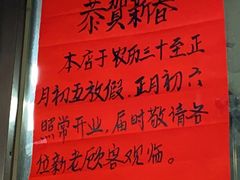 恭贺新春
本店于农历三十至正
月初五放假，正月初六
照常开业，届时敬请各
位新老顾客观临。